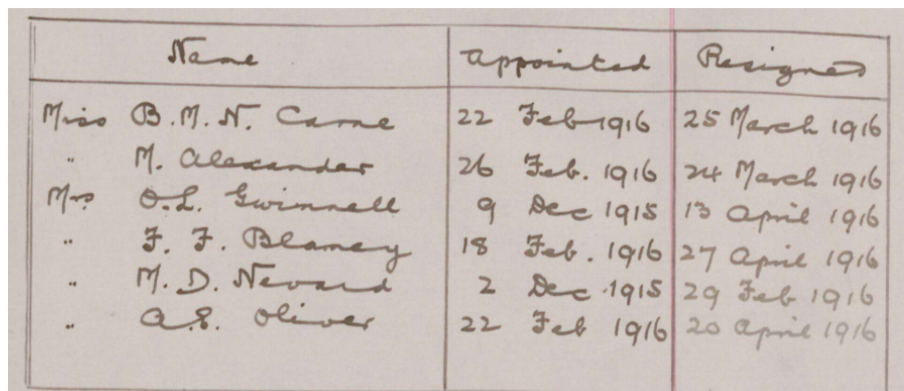 Name Appointed Resigned
Miss B. M. N. Carne 22 Feb 1916 25 March 1916
" M. Alexander 26 Feb. 1916 24 March 1916
Mrs O.L. Gwinnell 9 Dec 1915 13 April 1916
" F. F. Blamey 18 Feb. 1916 27 April 1916
" M. D. Nevard 2 Dec. 1915 29 Feb 1916
" A.E. Oliver 22 Feb 1916 20 April 1916